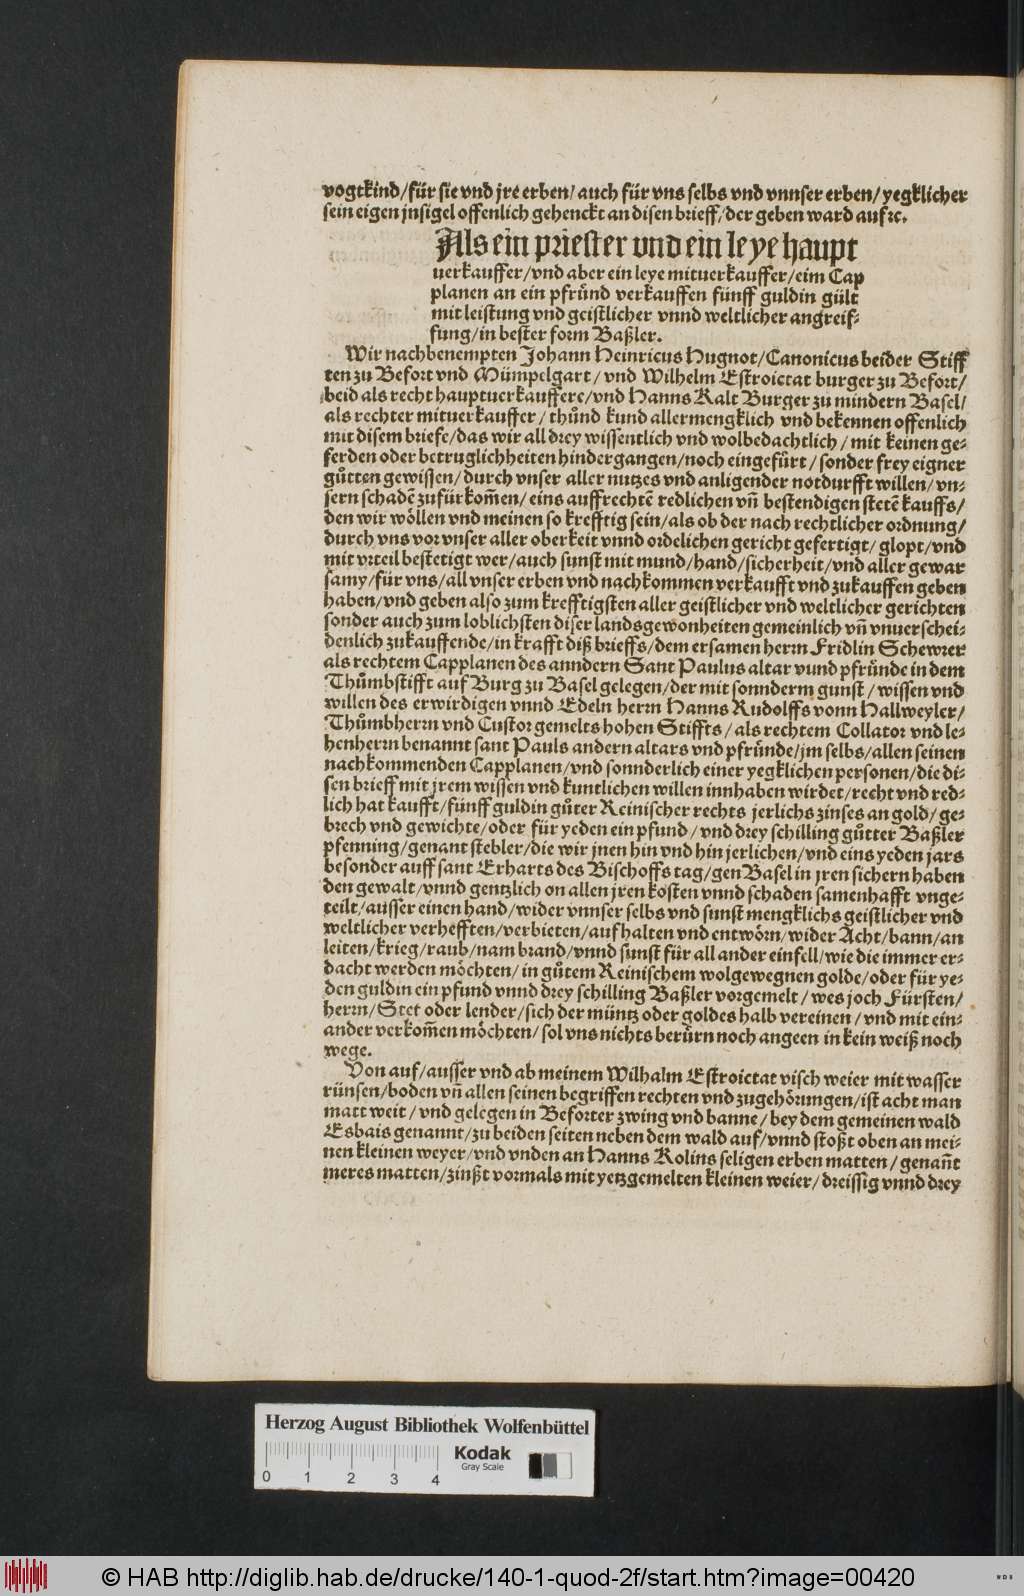 vogtkind/für sie vnd jre erben/ auch für vns selbs vnd vnnser erben/ yegklicher
sein eigen jnsigel offenlich gehenckt an disen brieff/der geben ward auf ꝛc.
Als ein priester vnd ein leye haupt
uerkauffer/vnd aber ein leye mituerkauffer/eim Cap
planen an ein pfrůnd verkauffen fünff guldin gült
mit leistung vnd geistlicher vnnd weltlicher angreif⸗
fung/in bester form Baßler.
Wir nachbenempten Johann Heinricus Hugnot/Canonicus beider Stiff
ten zu Befort vnd Mümpelgart/ vnd Wilhelm Estroictat burger zu Befort/
beid als recht hauptuerkauffere/vnd Hanns Kalt Burger zu mindern Basel/
als rechter mituerkauffer/ thůnd kund allermengklich vnd bekennen offenlich
mit disem briefe/das wir all drey wissentlich vnd wolbedachtlich/ mit keinen ge⸗
ferden oder betruglichheiten hindergangen/noch eingefürt/ sonder frey eigner
gůtten gewissen/ durch vnser aller nutzes vnd anligender notdurfft willen/ vn⸗
sern schadē zufürkom̄en/ eins auffrechtē redlichen vn̄ bestendigen stetē kauffs/
den wir wöllen vnd meinen so krefftig sein/als ob der nach rechtlicher ordnung/
durch vns vor vnser aller oberkeit vnnd ordelichen gericht gefertigt/ glopt/vnd
mit vrteil bestetigt wer/auch sunst mit mund/hand/sicherheit/vnd aller gewar
samy/für vns/all vnser erben vnd nachkommen verkaufft vnd zukauffen geben
haben/vnd geben also zum krefftigsten aller geistlicher vnd weltlicher gerichten
sonder auch zum loblichsten diser landsgewonheiten gemeinlich vn̄ vnuerschei⸗
denlich zukauffende/in krafft diß brieffs/dem ersamen herrn Fridlin Schewrer
als rechtem Capplanen des anndern Sant Paulus altar vund pfrůnde in dem
Thůmbstifft auf Burg zu Basel gelegen/der mit sonnderm gunst/ wissen vnd
willen des erwirdigen vnnd Edeln herrn Hanns Rudolffs vonn Hallweyler/
Thůmbherrn vnd Custor gemelts hohen Stiffts/ als rechtem Collator vnd le⸗
henherrn benannt sant Pauls andern altars vnd pfrůnde/jm selbs/allen seinen
nachkommenden Capplanen/vnd sonnderlich einer yegklichen personen/die di⸗
sen brieff mit jrem wissen vnd kuntlichen willen innhaben wirdet/recht vnd red⸗
lich hat kaufft/fünff guldin gůter Reinischer rechts jerlichs zinses an gold/ ge⸗
brech vnd gewichte/oder für yeden ein pfund/ vnd drey schilling gůtter Baßler
pfenning/genant stebler/die wir jnen hin vnd hin jerlichen/vnd eins yeden jars
besonder auff sant Erharts des Bischoffs tag/gen Basel in jren sichern haben
den gewalt/vnnd gentzlich on allen jren kosten vnnd schaden samenhafft vnge⸗
teilt/ausser einen hand/wider vnnser selbs vnd sunst mengklichs geistlicher vnd
weltlicher verhefften/verbieten/aufhalten vnd entwörn/wider Acht/bann/an
leiten/krieg/raub/nam brand/vnnd sunst für all ander einfell/wie die immer er⸗
dacht werden möchten/in gůtem Reinischem wolgewegnen golde/oder für ye⸗
den guldin ein pfund vnnd drey schilling Baßler vorgemelt/ wes joch Fürsten/
herrn/Stet oder lender/sich der müntz oder goldes halb vereinen/ vnd mit ein⸗
ander verkom̄en möchten/ sol vns nichts berürn noch angeen in kein weiß noch
wege.
Von auf/ausser vnd ab meinem Wilhalm Estroictat visch weier mit wasser
rünsen/boden vn̄ allen seinen begriffen rechten vnd zugehörungen/ist acht man
matt weit/ vnd gelegen in Beforter zwing vnd banne/ bey dem gemeinen wald
Esbais genannt/zu beiden seiten neben dem wald auf/vnnd stoßt oben an mei⸗
nen kleinen weyer/vnd vnden an Hanns Rolins seligen erben matten/ genan̄t
meres matten/zinßt vormals mit yetzgemelten kleinen weier/dreissig vnnd drey
Herzog August Bibliothek Wolfenbüttel
Kodak
Gray Scale
0 1 2 3 4
© HAB http://diglib.hab.de/drucke/140-1-quod-2f/start.htm?image=00420